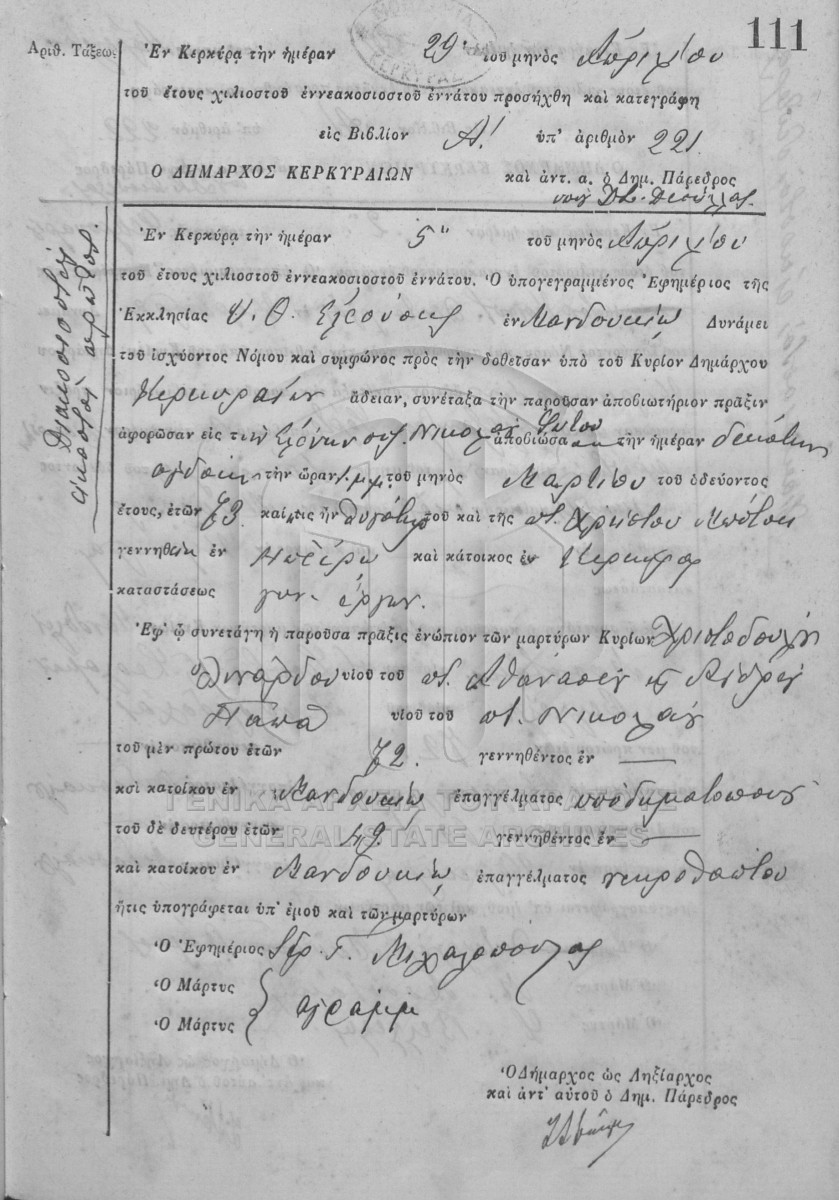 111
Ἀριθ. Τάξεως
Ἐν Κερκύρᾳ τὴν ἡμέραν 29 τοῦ μηνὸς Ἀπριλίου
τοῦ ἔτους χιλιοστοῦ ἐννεακοσιοστοῦ ἐννάτου προσήχθη καὶ κατεγράφη
εἰς Βιβλίον Α! ὑπ' ἀριθμὸν 221
Ο ΔΗΜΑΡΧΟΣ ΚΕΡΚΥΡΑΙΩΝ καὶ ἀντ. α. ὁ Δημ. Πάρεδρος
Διακοσιοστὴ
εἰκοστὴ πρώτη.
Ἐν Κερκύρᾳ τὴν ἡμέραν 5η τοῦ μηνὸς Ἀπριλίου
τοῦ ἔτους χιλιοστοῦ ἐννεακοσιοστοῦ ἐννάτου. Ὁ ὑπογεγραμμένος Ἐφημέριος τῆς
Ἐκκλησίας Υ. Θ. Ἐλεούσης ἐν Μανδουκίῳ Δυνάμει
τοῦ ἰσχύοντος Νόμου καὶ συμφώνος πρὸς τὴν δοθεῖσαν ὑπὸ τοῦ Κυρίου Δημάρχου
Κερκυραίων ἄδειαν, συνέταξα τὴν παροῦσαν ἀποβιωτήριον πρᾶξιν
ἀφορῶσαν εἰς τὴν Ἑλένην συζ. Νικολάου Φώτου ἀποβιώσασαν τὴν ἡμέραν δεκάτην
ὀγδόην τὴν ὥραν μ.μ. τοῦ μηνὸς Μαρτίου τοῦ ὁδεύοντος
ἔτους, ἐτῶν 73 καὶ ἥτις ἦν θυγάτηρ τοῦ καὶ τῆς ποτ. Χρήστου Μπότση
γεννηθεῖσα ἐν Ἠπείρῳ καὶ κάτοικος ἐν Κερκύρᾳ
καταστάσεως γυν. ἐργων.
Ἐφ' ᾧ συνετάγη ἡ παροῦσα πρᾶξις ἐνώπιον τῶν μαρτύρων Κυρίων Χριστοδούλου
υἱοῦ τοῦ ποτ. Ἀθανασίου κ Ἀνδρέου
Παπᾶ υἱοῦ τοῦ ποτ. Νικολάου
τοῦ μὲν πρώτου ἐτῶν 72. γεννηθέντος ἐν —
κσὶ κατοίκου ἐν Μανδουκίῳ ἐπαγγέλματος ὑποδηματοποιοῦ
ΓΕΝΙΚΑ ΑΡΧΕΙΑ ΤΟΥ ΚΡΑΤΟΥΣ
τοῦ δὲ δευτέρου ἐτῶν 49 γεννηθέντος ἐν —
GENERAL STATE ARCHIVES
καὶ κατοίκου ἐν Μανδουκίῳ ἐπαγγέλματος νεκροθάπτου
ἥτις ὑπογράφεται ὑπ' ἐμοῦ καὶ τῶν μαρτύρων
Ὁ Ἐφημέριος Ἱερ. Γ. Μιχαλόπουλος
Ὁ Μάρτυς
Ὁ Μάρτυς ἀγράμμ
Ὁ Δήμαρχος ὡς Ληξίαρχος
καὶ ἀντ' αὐτοῦ ὁ Δημ. Πάρεδρος